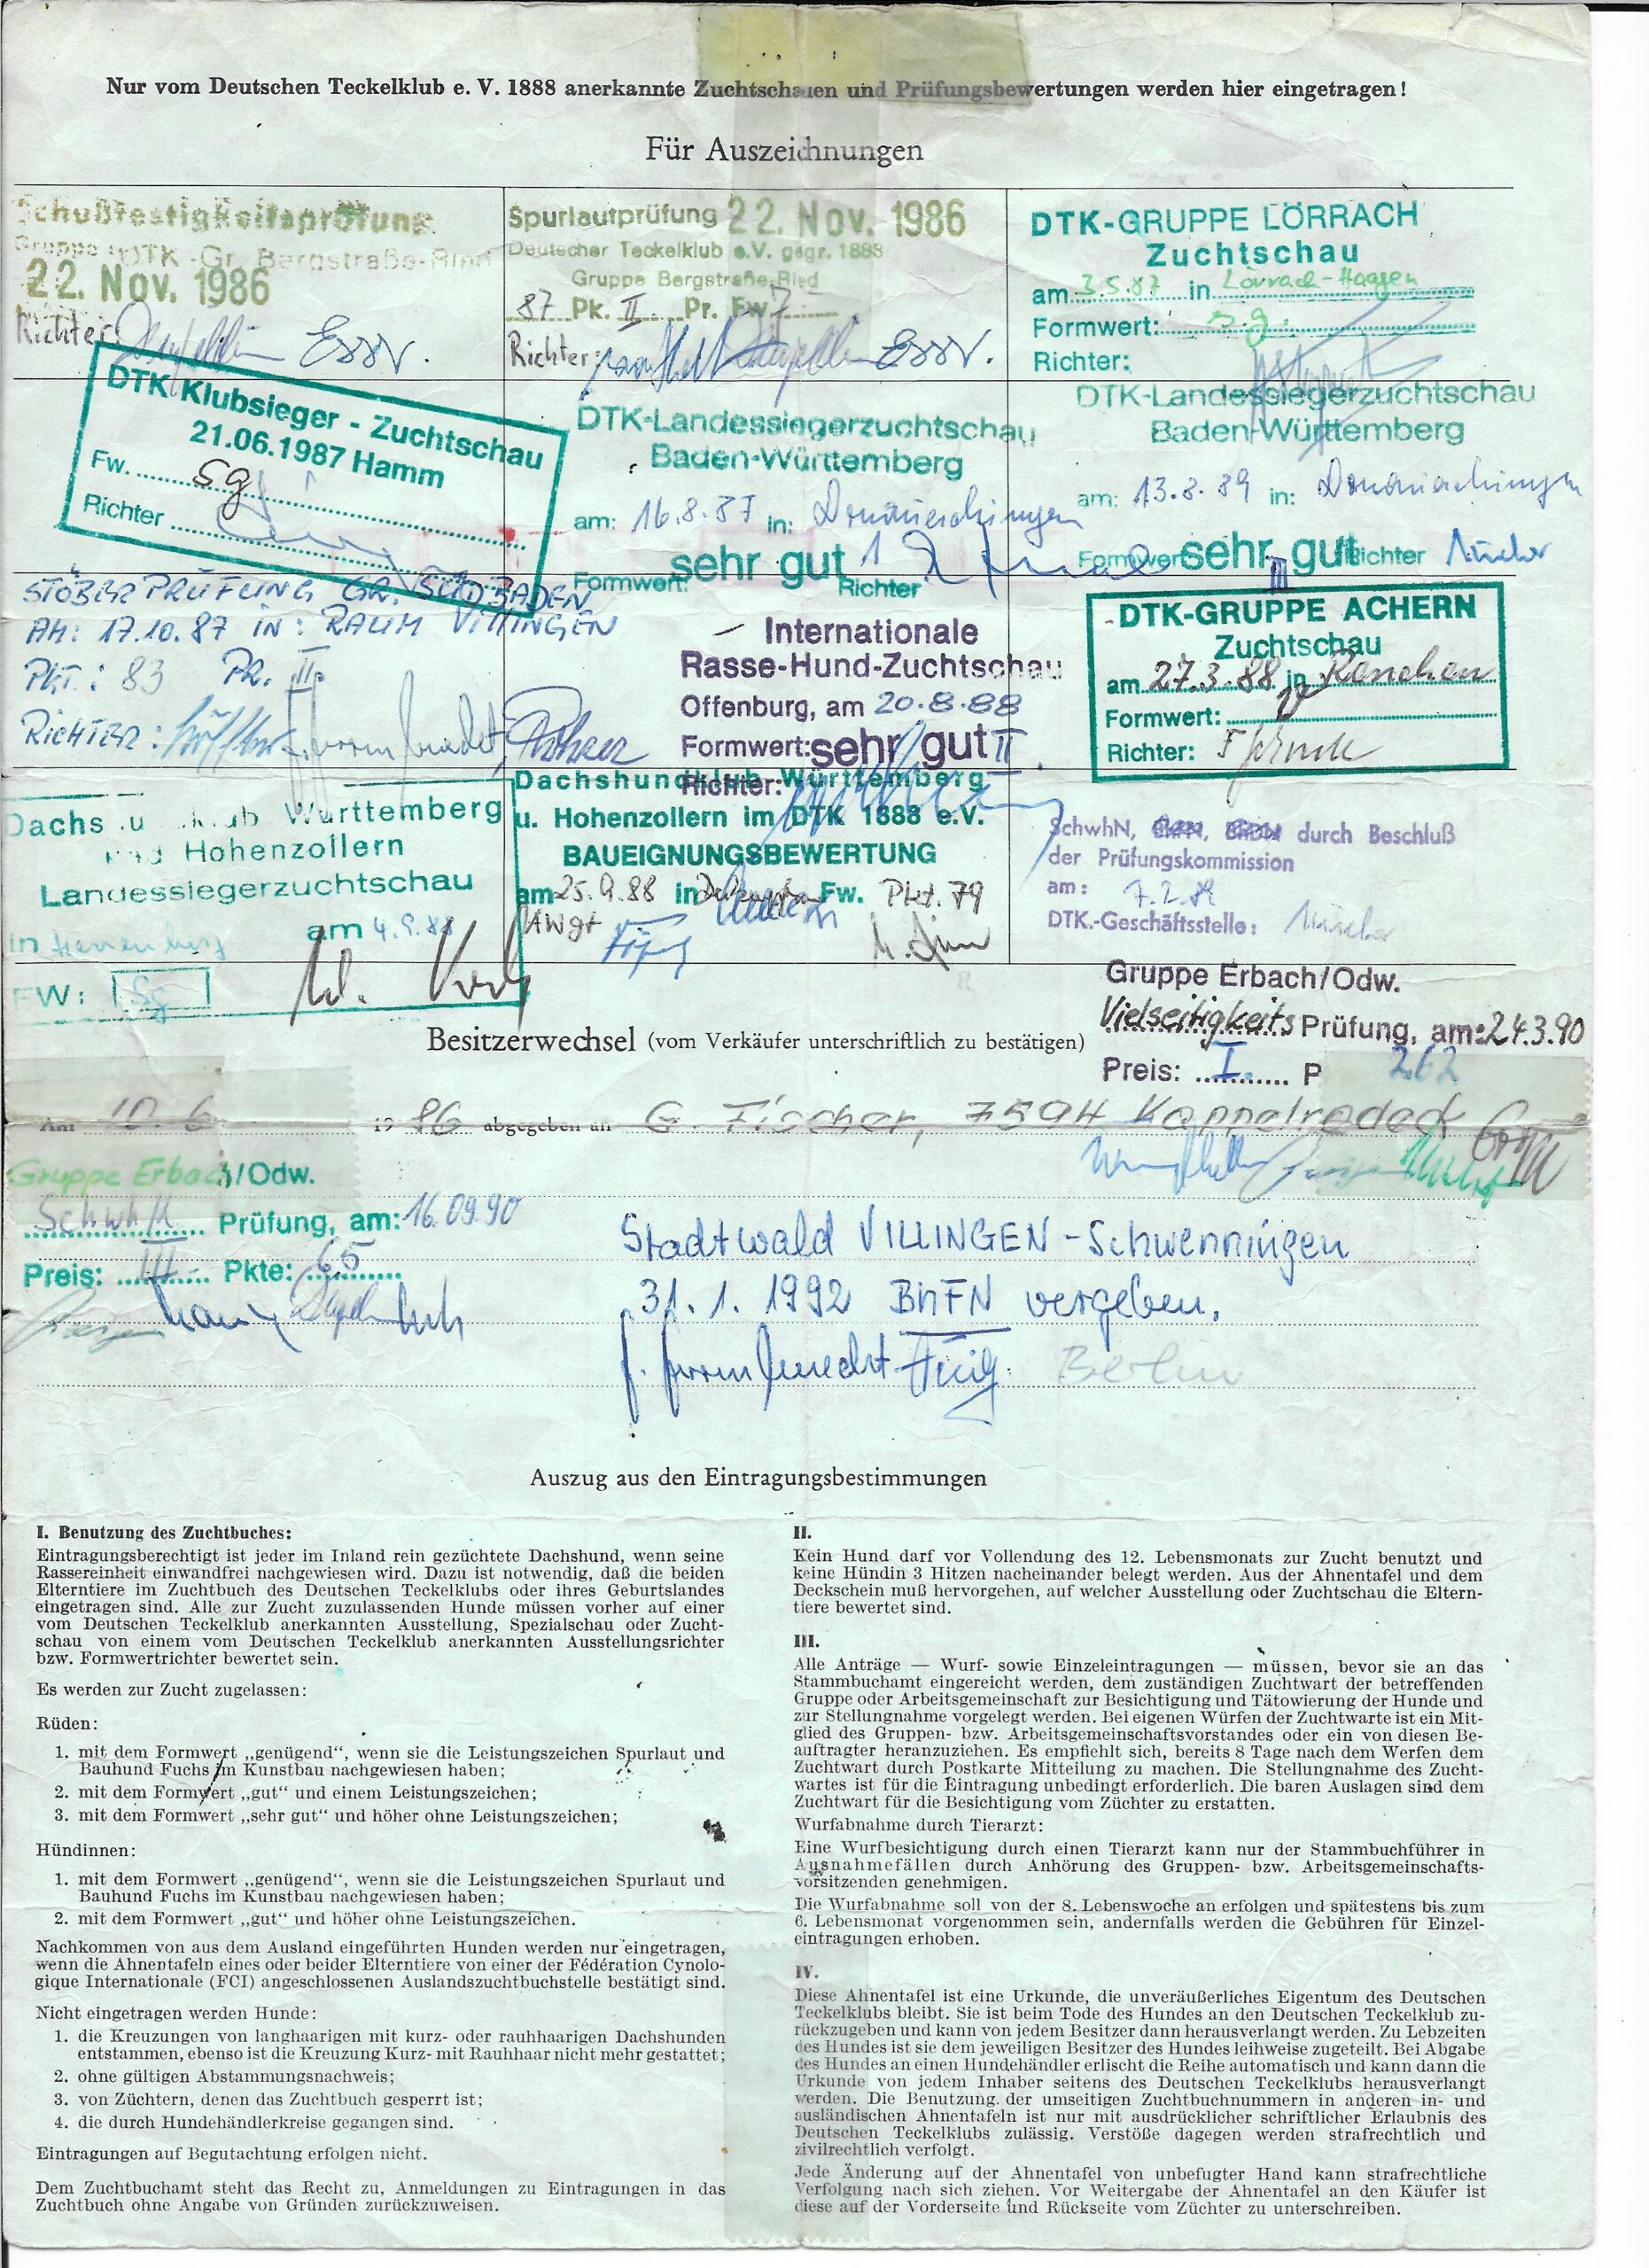 Nur vom Deutschen Teckelklub e. V. 1888 anerkannte Zuchtschauen und Prüfungsbewertungen werden hier eingetragen!
Für Auszeichnungen
Schußfestigkeitsprüfung
Gruppe DTK-Gr. Bergstraße-Ried
22. Nov. 1986
Richter
Spurlautprüfung 22. Nov. 1986
Deutscher Teckelklub e.V. gegr. 1888
Gruppe Bergstraße Ried
87 Pk. II Pr. Fw 7
Richter:
DTK-GRUPPE LÖRRACH
Zuchtschau
am 3.5.87 in Lörrach-Haagen
Formwert: s.g.
Richter:
DTK Klubsieger - Zuchtschau
21.06.1987 Hamm
Fw. sg
Richter
DTK-Landessiegerzuchtschau
Baden-Württemberg
am: 16.8.87 in: Donaueschingen
Formwert: sehr gut 1 Richter
DTK-Landessiegerzuchtschau
Baden-Württemberg
am: 13.8.89 in: Donaueschingen
Formwert sehr gut III Richter
STÖBERPRÜFUNG GR. SÜDBADEN
AM: 17.10.87 IN: RAUM VILLINGEN
PKT.: 83 PR. II
RICHTER:
Internationale
Rasse-Hund-Zuchtschau
Offenburg, am 20.8.88
Formwert: sehr gut II
Richter:
DTK-GRUPPE ACHERN
Zuchtschau
am 27.3.88 in Renchen
Formwert:
Richter:
Württemberg
Hohenzollern
Landessiegerzuchtschau
am 4.9.88
in Herrenberg
FW: Sg
Dachshundklub Württemberg
u. Hohenzollern im DTK 1888 e.V.
BAUEIGNUNGSBEWERTUNG
am 25.9.88 in Fw. Pkt. 79
SchwhN, durch Beschluß
der Prüfungskommission
am: 7.2.89
DTK.-Geschäftsstelle:
Gruppe Erbach/Odw.
Vielseitigkeits Prüfung, am: 24.3.90
Preis: I. P 262
Besitzerwechsel (vom Verkäufer unterschriftlich zu bestätigen)
Am 10.6 1986 abgegeben an G. Fischer, 7594 Kappelrodeck
Gruppe Erbach/Odw.
SchwhK Prüfung, am: 16.09.90
Preis: III Pkte: 65
Stadtwald VILLINGEN-Schwenningen
31.1.1992 BhFN vergeben.
Berlin
Auszug aus den Eintragungsbestimmungen
I. Benutzung des Zuchtbuches:
Eintragungsberechtigt ist jeder im Inland rein gezüchtete Dachshund, wenn seine
Rassereinheit einwandfrei nachgewiesen wird. Dazu ist notwendig, daß die beiden
Elterntiere im Zuchtbuch des Deutschen Teckelklubs oder ihres Geburtslandes
eingetragen sind. Alle zur Zucht zuzulassenden Hunde müssen vorher auf einer
vom Deutschen Teckelklub anerkannten Ausstellung, Spezialschau oder Zucht-
schau von einem vom Deutschen Teckelklub anerkannten Ausstellungsrichter
bzw. Formwertrichter bewertet sein.
Es werden zur Zucht zugelassen:
Rüden:
1. mit dem Formwert „genügend“, wenn sie die Leistungszeichen Spurlaut und
Bauhund Fuchs im Kunstbau nachgewiesen haben;
2. mit dem Formwert „gut“ und einem Leistungszeichen;
3. mit dem Formwert „sehr gut“ und höher ohne Leistungszeichen;
Hündinnen:
1. mit dem Formwert „genügend“, wenn sie die Leistungszeichen Spurlaut und
Bauhund Fuchs im Kunstbau nachgewiesen haben;
2. mit dem Formwert „gut“ und höher ohne Leistungszeichen.
Nachkommen von aus dem Ausland eingeführten Hunden werden nur eingetragen,
wenn die Ahnentafeln eines oder beider Elterntiere von einer der Fédération Cynolo-
gique Internationale (FCI) angeschlossenen Auslandszuchtbuchstelle bestätigt sind.
Nicht eingetragen werden Hunde:
1. die Kreuzungen von langhaarigen mit kurz- oder rauhhaarigen Dachshunden
entstammen, ebenso ist die Kreuzung Kurz- mit Rauhhaar nicht mehr gestattet;
2. ohne gültigen Abstammungsnachweis;
3. von Züchtern, denen das Zuchtbuch gesperrt ist;
4. die durch Hundehändlerkreise gegangen sind.
Eintragungen auf Begutachtung erfolgen nicht.
Dem Zuchtbuchamt steht das Recht zu, Anmeldungen zu Eintragungen in das
Zuchtbuch ohne Angabe von Gründen zurückzuweisen.
II.
Kein Hund darf vor Vollendung des 12. Lebensmonats zur Zucht benutzt und
keine Hündin 3 Hitzen nacheinander belegt werden. Aus der Ahnentafel und dem
Deckschein muß hervorgehen, auf welcher Ausstellung oder Zuchtschau die Eltern-
tiere bewertet sind.
III.
Alle Anträge — Wurf- sowie Einzeleintragungen — müssen, bevor sie an das
Stammbuchamt eingereicht werden, dem zuständigen Zuchtwart der betreffenden
Gruppe oder Arbeitsgemeinschaft zur Besichtigung und Tätowierung der Hunde und
zur Stellungnahme vorgelegt werden. Bei eigenen Würfen der Zuchtwarte ist ein Mit-
glied des Gruppen- bzw. Arbeitsgemeinschaftsvorstandes oder ein von diesen Be-
auftragter heranzuziehen. Es empfiehlt sich, bereits 8 Tage nach dem Werfen dem
Zuchtwart durch Postkarte Mitteilung zu machen. Die Stellungnahme des Zucht-
wartes ist für die Eintragung unbedingt erforderlich. Die baren Auslagen sind dem
Zuchtwart für die Besichtigung vom Züchter zu erstatten.
Wurfabnahme durch Tierarzt:
Eine Wurfbesichtigung durch einen Tierarzt kann nur der Stammbuchführer in
Ausnahmefällen durch Anhörung des Gruppen- bzw. Arbeitsgemeinschafts-
vorsitzenden genehmigen.
Die Wurfabnahme soll von der 8. Lebenswoche an erfolgen und spätestens bis zum
6. Lebensmonat vorgenommen sein, andernfalls werden die Gebühren für Einzel-
eintragungen erhoben.
IV.
Diese Ahnentafel ist eine Urkunde, die unveräußerliches Eigentum des Deutschen
Teckelklubs bleibt. Sie ist beim Tode des Hundes an den Deutschen Teckelklub zu-
rückzugeben und kann von jedem Besitzer dann herausverlangt werden. Zu Lebzeiten
des Hundes ist sie dem jeweiligen Besitzer des Hundes leihweise zugeteilt. Bei Abgabe
des Hundes an einen Hundehändler erlischt die Reihe automatisch und kann dann die
Urkunde von jedem Inhaber seitens des Deutschen Teckelklubs herausverlangt
werden. Die Benutzung der umseitigen Zuchtbuchnummern in anderen in- und
ausländischen Ahnentafeln ist nur mit ausdrücklicher schriftlicher Erlaubnis des
Deutschen Teckelklubs zulässig. Verstöße dagegen werden strafrechtlich und
zivilrechtlich verfolgt.
Jede Änderung auf der Ahnentafel von unbefugter Hand kann strafrechtliche
Verfolgung nach sich ziehen. Vor Weitergabe der Ahnentafel an den Käufer ist
diese auf der Vorderseite und Rückseite vom Züchter zu unterschreiben.